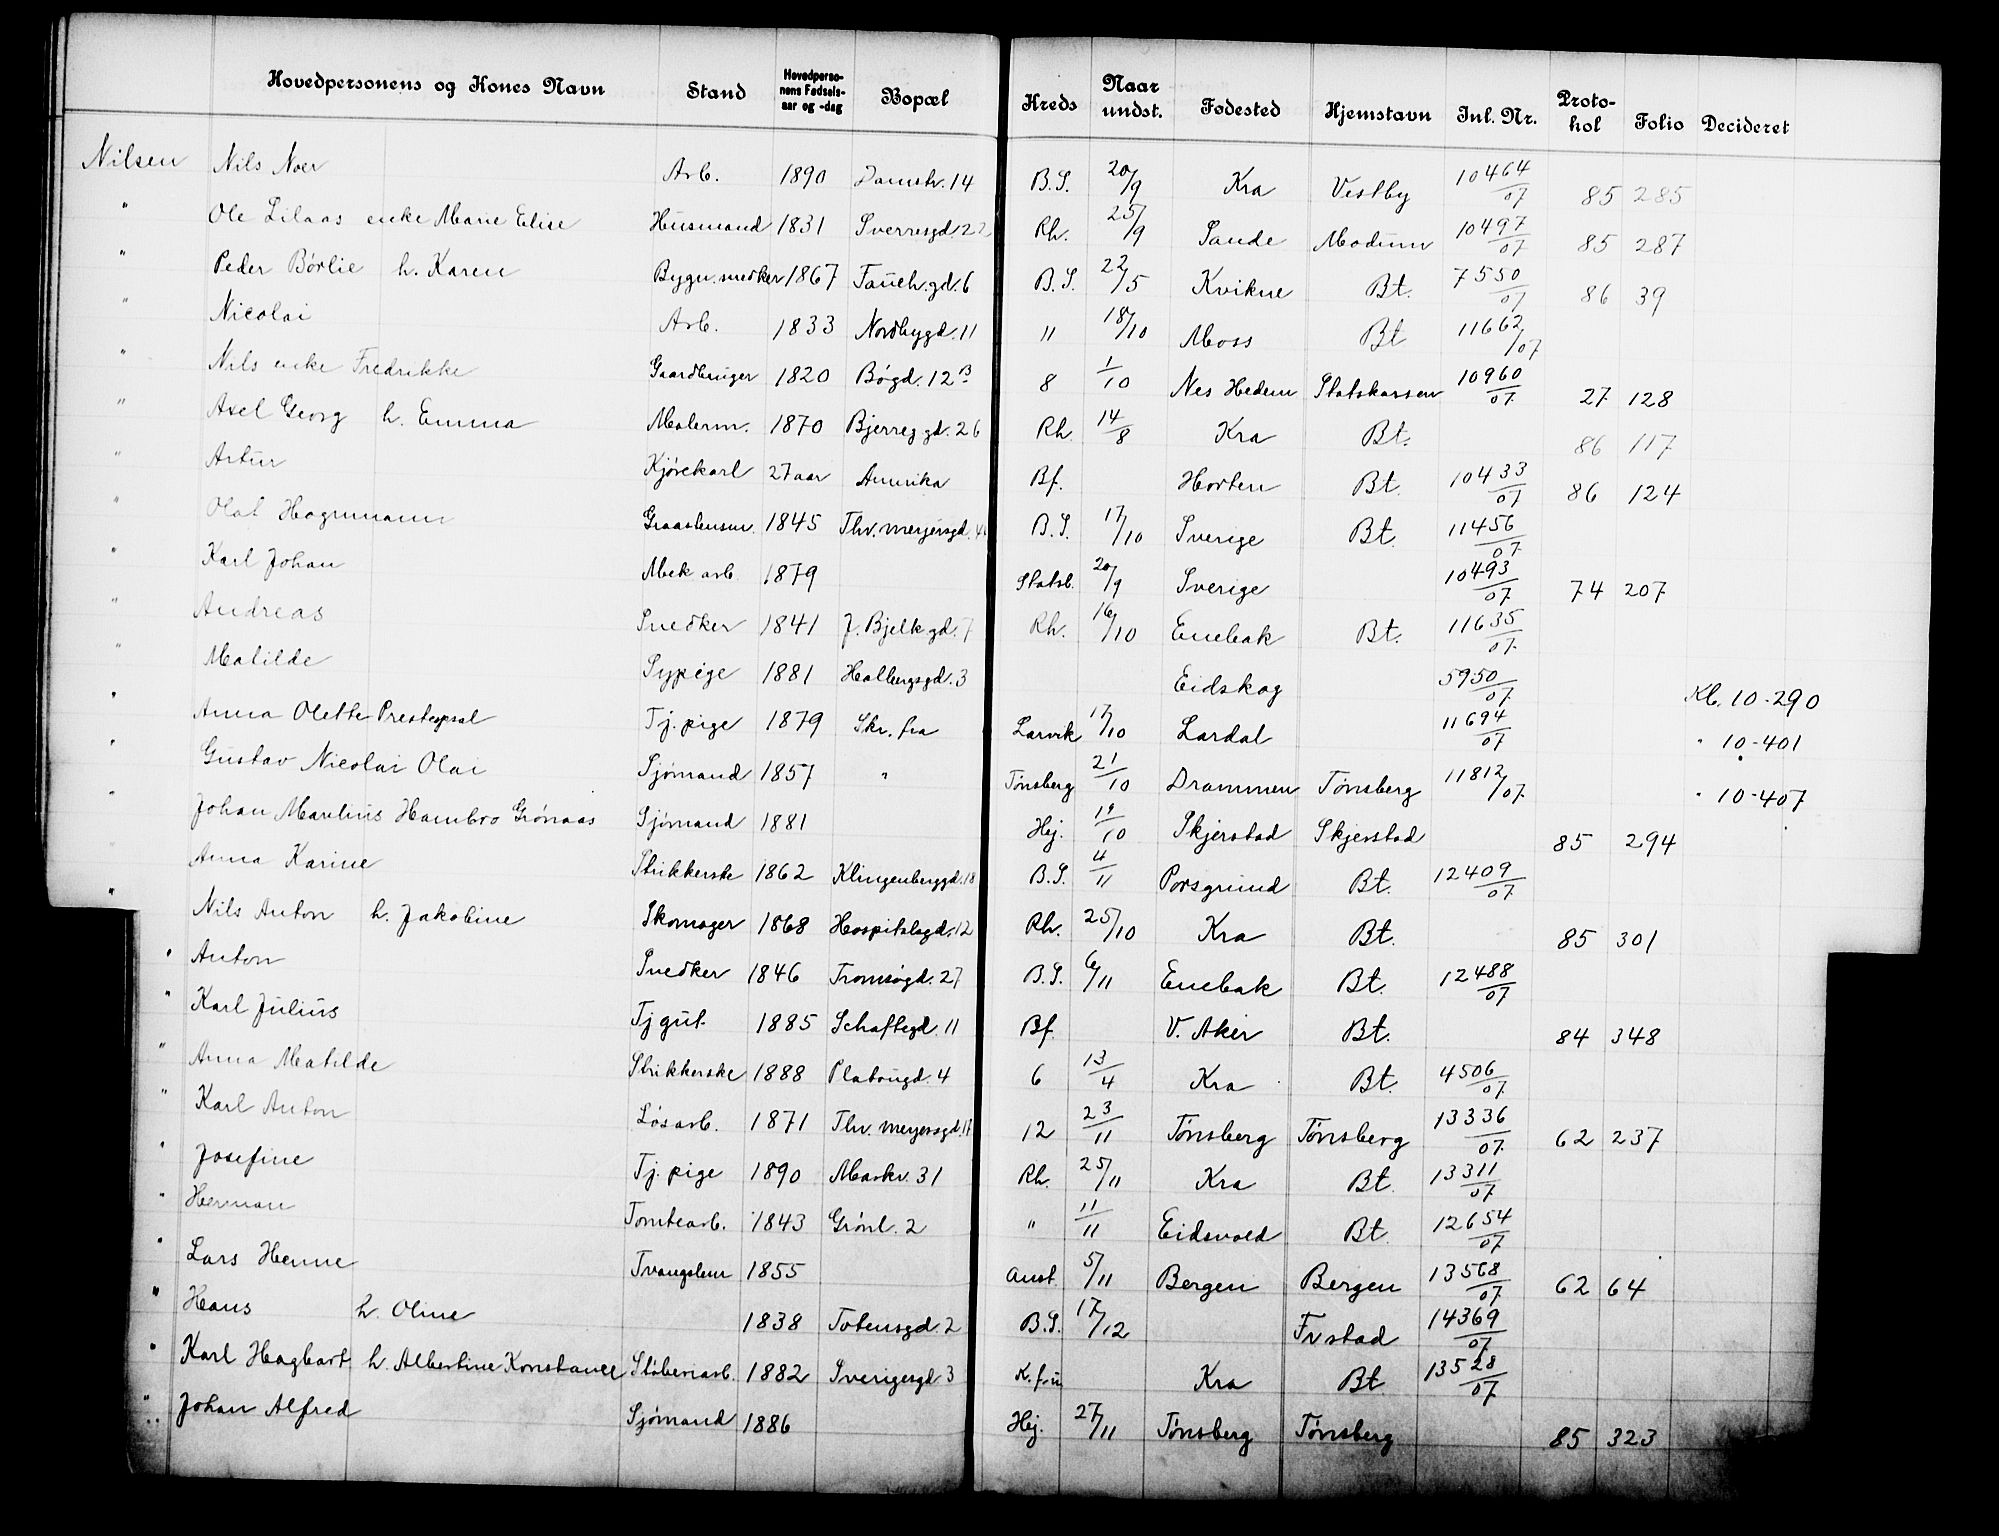 Hovedpersonens og Kones Navn Stand Hovedperso-nens Fødsels-aar og -dag Bopæl Kreds Naar undst. Fødested Hjemstavn Inl. Nr. Proto-kol Folio Decideret
Nilsen Nils Noer Arb. 1890 Damstr. 14 B.S. 20/9 Kra Vestby 10464/07 85 285
" Ole Lilaas enke Marie Elise Husmand 1831 Sverresgd. 22 Rh. 25/9 Sande Modum 10497/07 85 287
" Peder Børlie h. Karen Bygn. snedker 1867 Tauch. gd. 6 B.S. 22/5 Kvikne Bt. 7550/07 86 39
" Nicolai Arb. 1833 Nordbygd. 11 " 18/10 Moss Bt 11662/07
" Nils enke Fredrikke Gaardbruger 1820 Bøgd. 12B 8 1/10 Nes Hedem Statskassen 10960/07 27 128
" Axel Georg h. Emma Malerm. 1870 Bjerreg gd. 26 Rh 14/8 Kra Bt. 86 117
" Artur Kjørekarl 27 aar Amerika Bf. Horten Bt. 10433/07 86 124
" Olof Hagmann 1845 Thv. meyersgd. B.S. 17/10 Sverige Bt. 11456/07
" Karl Johan Mek arb. 1879 Statsb. 20/9 Sverige 10493/07 74 207
" Andreas Snedker 1841 J. Bjelk gd. 7 Rh. 16/10 Enebak Bt. 11635/07
" Matilde Sypige 1881 Holbergsgd. 3 Eidskog 5950/07 Kl. 10-290
" Anna Olette Tj. pige 1879 Skr. fra Larvik 17/10 Lardal 11694/07 " 10-401
" Gustav Nicolai Olai Sjømand 1857 " Tønsberg 21/10 Drammen Tønsberg 11812/07 " 10-407
" Johan Marelius Hambro Grønaas Sjømand 1881 Hej. 19/10 Skjerstad Skjerstad 85 294
" Anna Karine Strikkerske 1862 Klingenberggd. 18 B.S. 4/11 Porsgrund Bt. 12409/07
" Nils Anton h. Jakobine Skomager 1868 Hospitalsgd. 12 Rh. 25/10 Kra Bt. 85 301
" Anton Snedker 1846 Tromsøgd. 27 B.S. 6/11 Enebak Bt. 12488/07
" Karl Julius Tj gut. 1885 Schaftegd. 11 Bf. V. Aker Bt. 84 348
" Anna Matilde Strikkerske 1888 Platougd. 4 6 13/4 Kra Bt. 4506/07
" Karl Anton Løsarb. 1871 Thv. meyersgd. 17 12 23/11 Tønsberg Tønsberg 13336/07 62 237
" Josefine Tj. pige 1890 Markv. 31 Rh. 25/11 Kra Bt. 13311/07
" Herman Tomtearb. 1843 Grønl. 2 " 11/11 Eidsvold Bt. 12654/07
" Lars Henne Tvangslem 1855 Anst. 5/11 Bergen Bergen 13568/07 62 64
" Hans h. Oline 1838 Totensgd. 2 B.S. 17/12 Frstad 14369/07
" Karl Hagbart h. Albertine Konstance Støberiarb. 1882 Sverigesgd 3 K. f. u Kra Bt 13528/07
" Johan Alfred Sjømand 1886 Hej. 27/11 Tønsberg Tønsberg 85 323